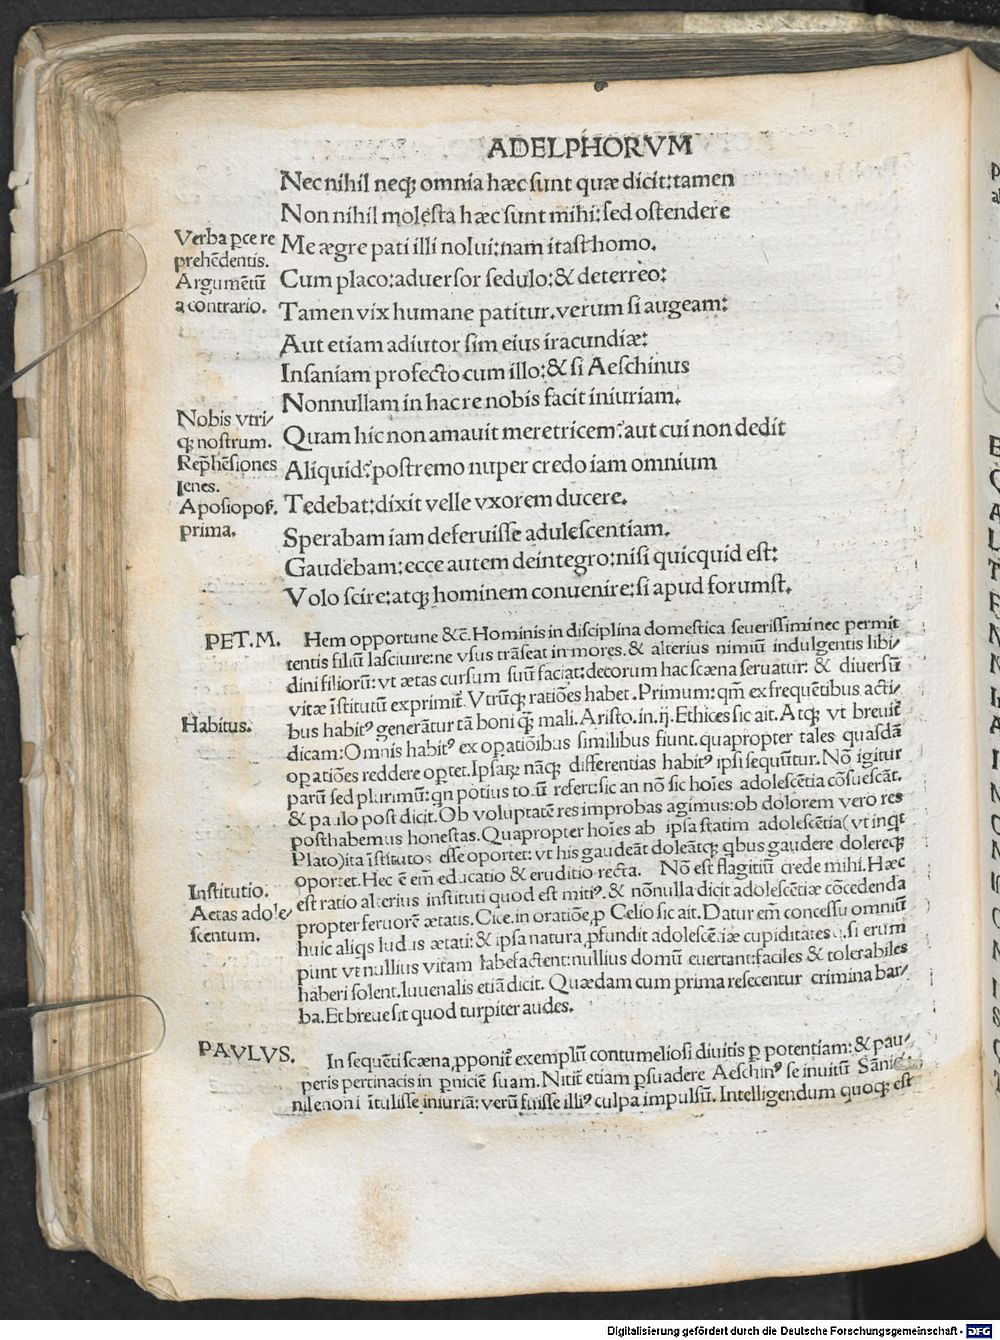 ADELPHORVM
Nec nihil neq; omnia hæc sunt quæ dicit: tamen
Non nihil molesta hæc sunt mihi: sed ostendere
Me ægre pati illi nolui: nam itast homo.
Cum placo: aduersor sedulo: & deterreo:
Tamen vix humane patitur. verum si augeam:
Aut etiam adiutor sim eius iracundiæ:
Insaniam profecto cum illo: & si Aeschinus
Nonnullam in hac re nobis facit iniuriam.
Quam hic non amauit meretricem? aut cui non dedit
Aliquid? postremo nuper credo iam omnium
Tedebat: dixit velle vxorem ducere.
Sperabam iam deferuisse adulescentiam.
Gaudebam: ecce autem deintegro: nisi quicquid est:
Volo scire: atq; hominem conuenire: si apud forumst.
Verba pce re
prehēdentis.
Argumētū
a contrario.
Nobis vtri/
q; nostrum.
Rep̄hēsiones
lenes.
Aposiopos.
prima.
PET. M. Hem opportune &c̄. Hominis in disciplina domestica seuerissimi nec permit
tentis filiū lasciuire: ne vsus trāseat in mores. & alterius nimiū indulgentis libi/
dini filiorū: vt ætas cursum suū faciat: decorum hac scæna seruatur: & diuersū
vitæ īstitutū exprimit̄. Vtrūq; ratiōes habet. Primum: qm̄ ex frequētibus acti/
bus habitꝰ generātur tā boni q̄ mali. Aristo. in. ij. Ethices sic ait. Atq; vt breuit̄
dicam: Omnis habitꝰ ex opatiōibus similibus fiunt. quapropter tales quasdā
opatiōes reddere oportet. Ipsaꝝ nāq; differentias habitꝰ ipsi sequūtur. Nō igitur
parū sed plurimū: qn potius totū refert: sic an nō sic hoīes adolescētia cōsuescāt.
& paulo post dicit. Ob voluptatē res improbas agimus: ob dolorem vero res
posthabemus honestas. Quapropter hoīes ab ipsa statim adolescētia (vt inqt
Plato) ita īstitutos esse oportet: vt his gaudeāt doleātq; qbus gaudere dolereq;
oportet. Hec ē em̄ educatio & eruditio recta. Nō est flagitiū crede mihi. Hæc
est ratio alterius instituti quod est mitiꝰ. & nōnulla dicit adolescētiæ cōcedenda
propter feruorē ætatis. Cice. in oratiōe p Celio sic ait. Datur em̄ concessu omniū
huic aliqs ludus ætati: & ipsa natura pfundit adolescētiæ cupiditates q si erum
punt vt nullius vitam labefactent: nullius domū euertant: faciles & tolerabiles
haberi solent. Iuuenalis etiā dicit. Quædam cum prima resecentur crimina bar/
ba. Et breue sit quod turpiter audes.
Habitus.
Institutio.
Aetas adole/
scentum.
PAVLVS. In sequēti scæna pponit̄ exemplū contumeliosi diuitis p potentiam: & pau/
peris pertinacis in pniciē suam. Nitit̄ etiam psuadere Aeschinꝰ se inuitū Sānio
ni lenoni ītulisse iniuriā: verū fuisse illiꝰ culpa impulsū. Intelligendum quoq; est
Digitalisierung gefördert durch die Deutsche Forschungsgemeinschaft - DFG